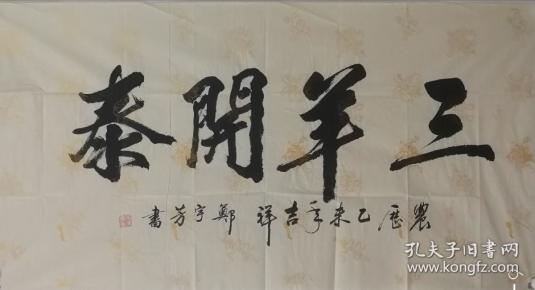 三羊開泰
農歷乙未年吉祥 鄭宇芳書
孔夫子旧书网
www.kongfz.com